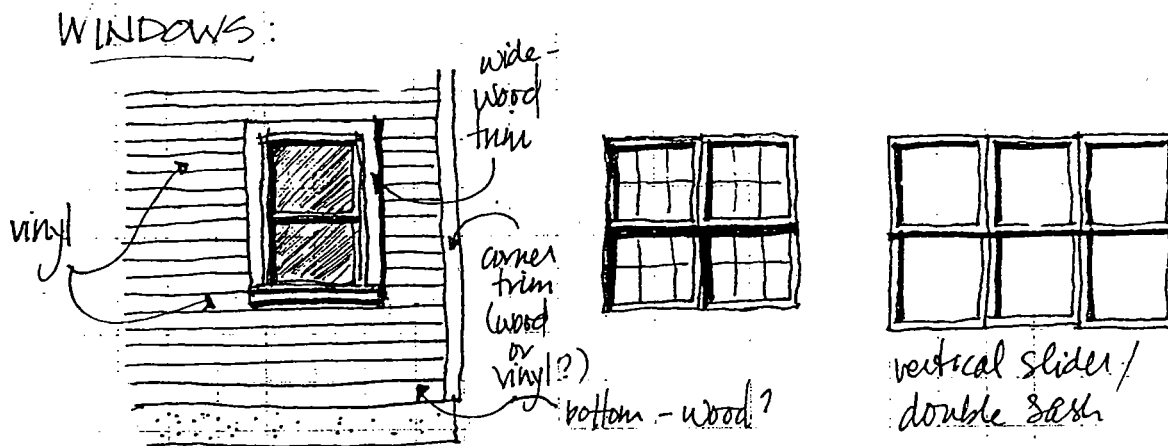 WINDOWS:
wide-
wood
trim
vinyl
corner
trim
(wood
or
vinyl?)
bottom - wood?
vertical slider/
double sash